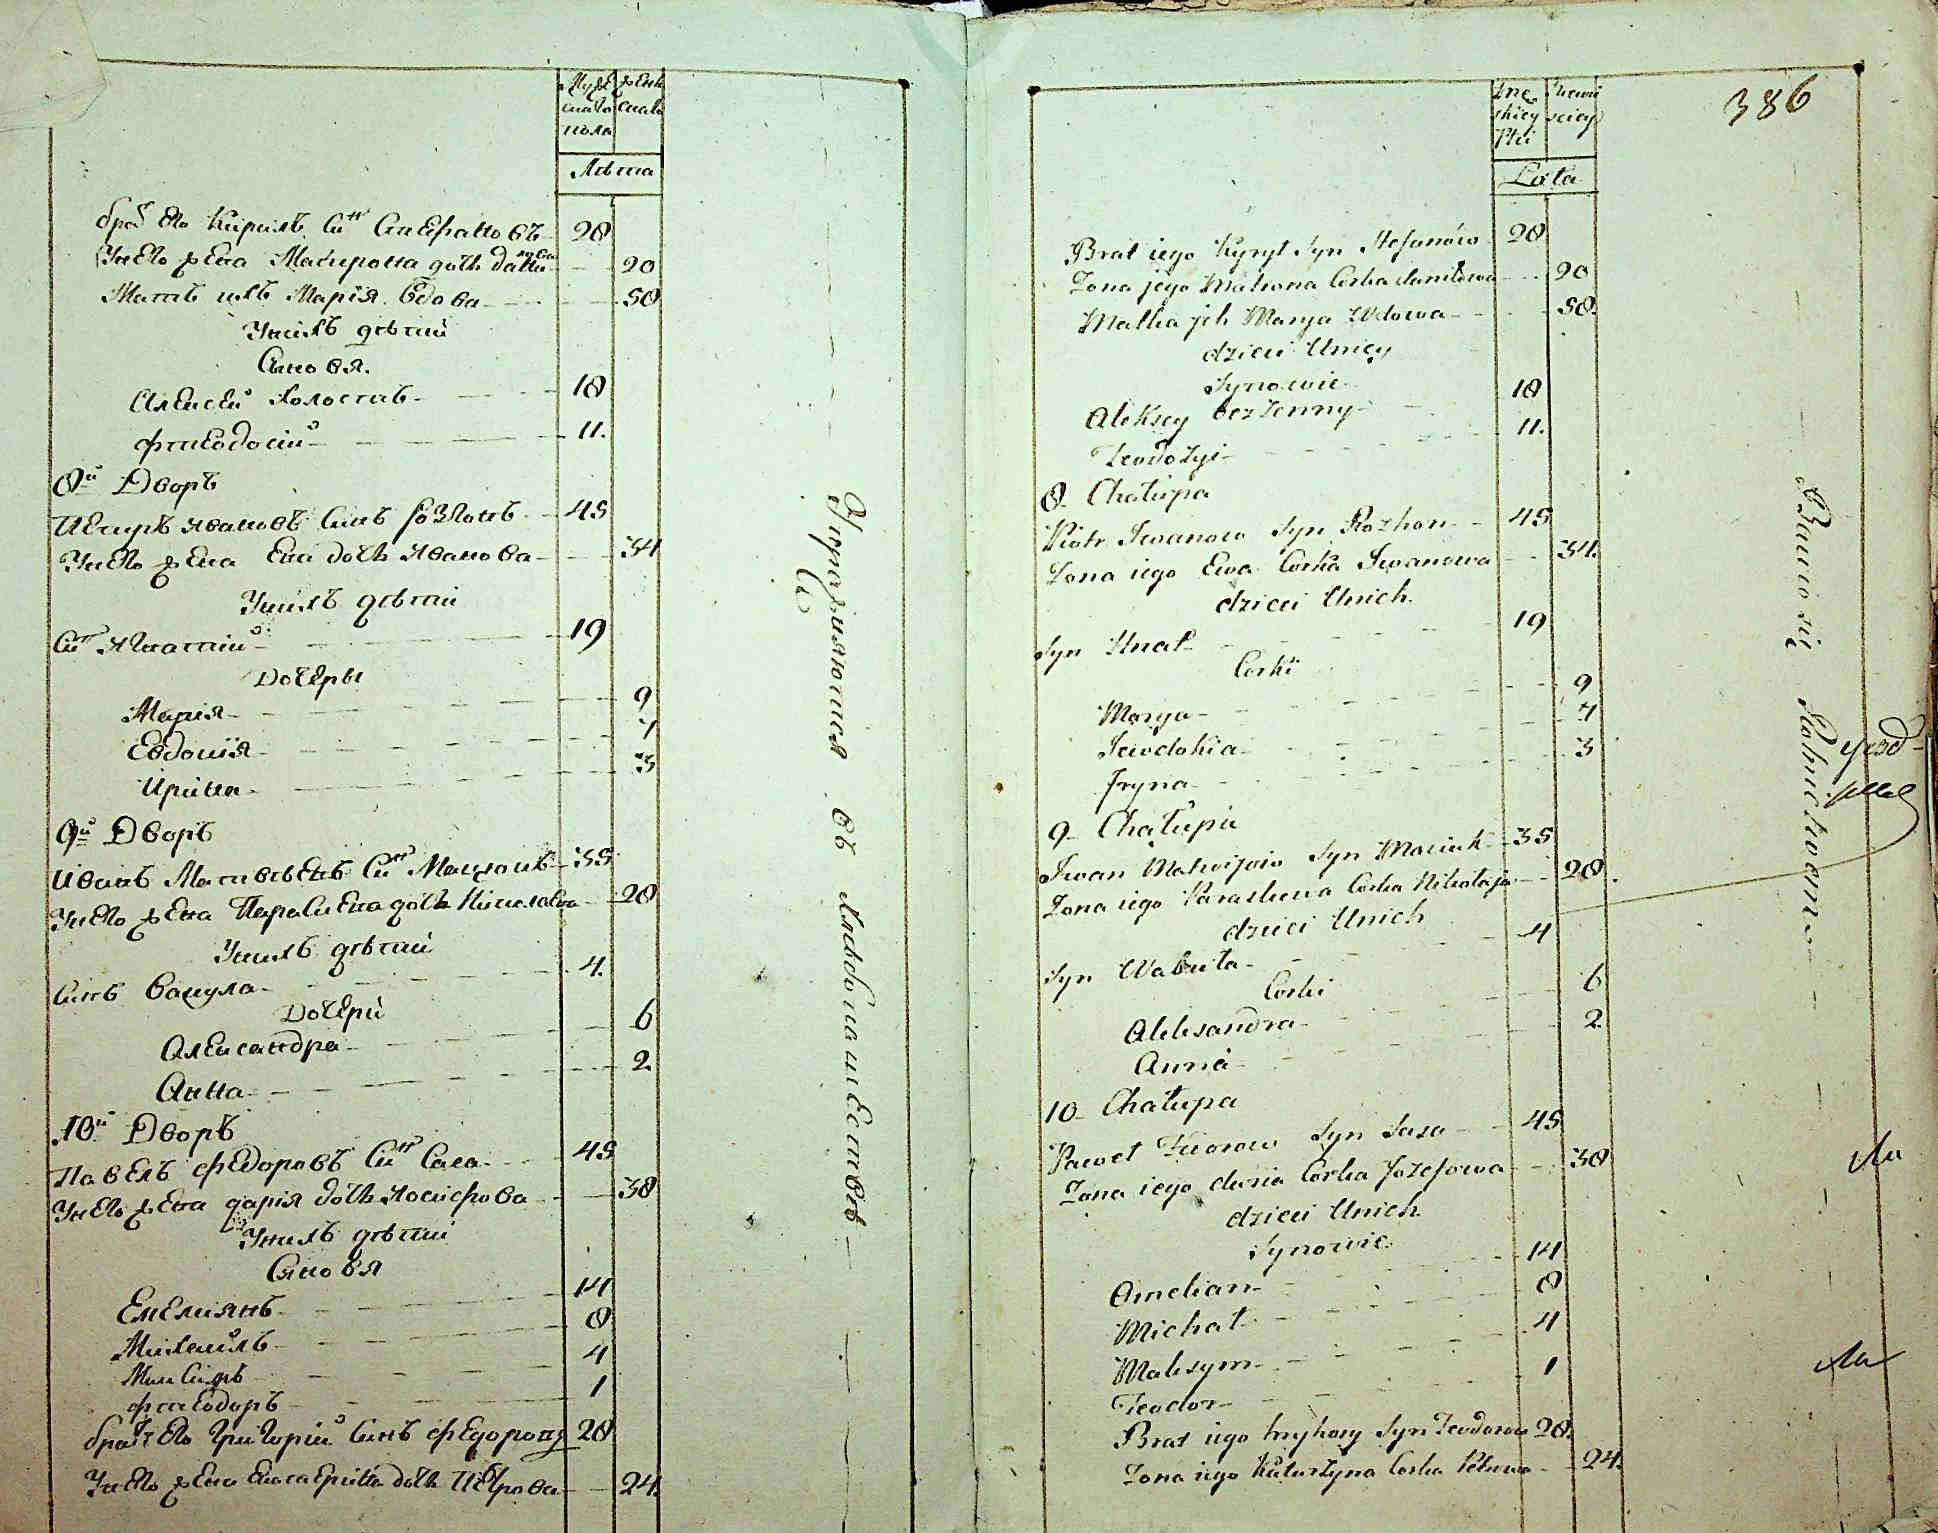 Мужеска пола
женска
Лѣта
братъ его Кирилъ Синъ Стефановъ 28
У него жена Матрона дочь Данилова 20
Мать ихъ Марія вдова 58
У нихъ дѣти
Синовя
Алексей холостъ 18
Фтеодосій 11.
8й Дворъ
Петръ Ивановъ Синъ Рожонъ 45
У него жена Ева дочь Иванова 34
У нихъ дѣти
Синъ Игнатій 19
Дочеры
Марія 9
Евдокія 7
Ирина 3
9й Дворъ
Иванъ Матвѣевъ Синъ 35
У него жена Параскева дочь Николаева 28
У нихъ дѣти
Синъ Вакула 4.
Дочери
Александра 6
Анна 2
10й Дворъ
Павелъ Федоровъ Синъ Саса 45
У него жена Дарія дочь Иосифова 38
У нихъ дѣти
Синовя
Емеліянъ 14
Михаилъ 8
Максимъ 4
Фтеодоръ 1
братъ его Григорій Синъ Федоровъ 28
У него жена Екатерина дочь Петрова 24.
Упражняются въ хлебопашествѣ
386
Męskiey Płci
Żeńskiey
Lata
Brat iego Kyrył Syn Stefanów 28
Żona jego Matrona Corka Daniłowa 20
Matka jch Marya Wdowa 58.
dzieci Unich
Synowie
Aleksey bezżenny 18
Teodozyi 11.
8 Chałupa
Piotr Iwanow Syn Rozhon 45
Żona iego Ewa Corka Iwanowa 34.
dzieci Unich
Syn Hnat 19
Corki
Marya 9
Iewdokia 7
Jryna 3
9 Chałupa
Iwan Matwijow Syn 35
Żona iego Paraskewa Corka Nikołaja 28
dzieci Unich
Syn Wakuła 4
Corki
Aleksandra 6
Anna 2
10 Chałupa
Paweł Teodorow Syn Sasa 45
Żona iego daria Corka Jozefowa 38
dzieci Unich
Synowie
Omelian 14
Michał 8
Maksym 4
Teodor 1
Brat iego Hryhory Syn Teodorow 28.
Żona iego Katarzyna Corka Petrowa 24.
Bawio się Rolnictwem